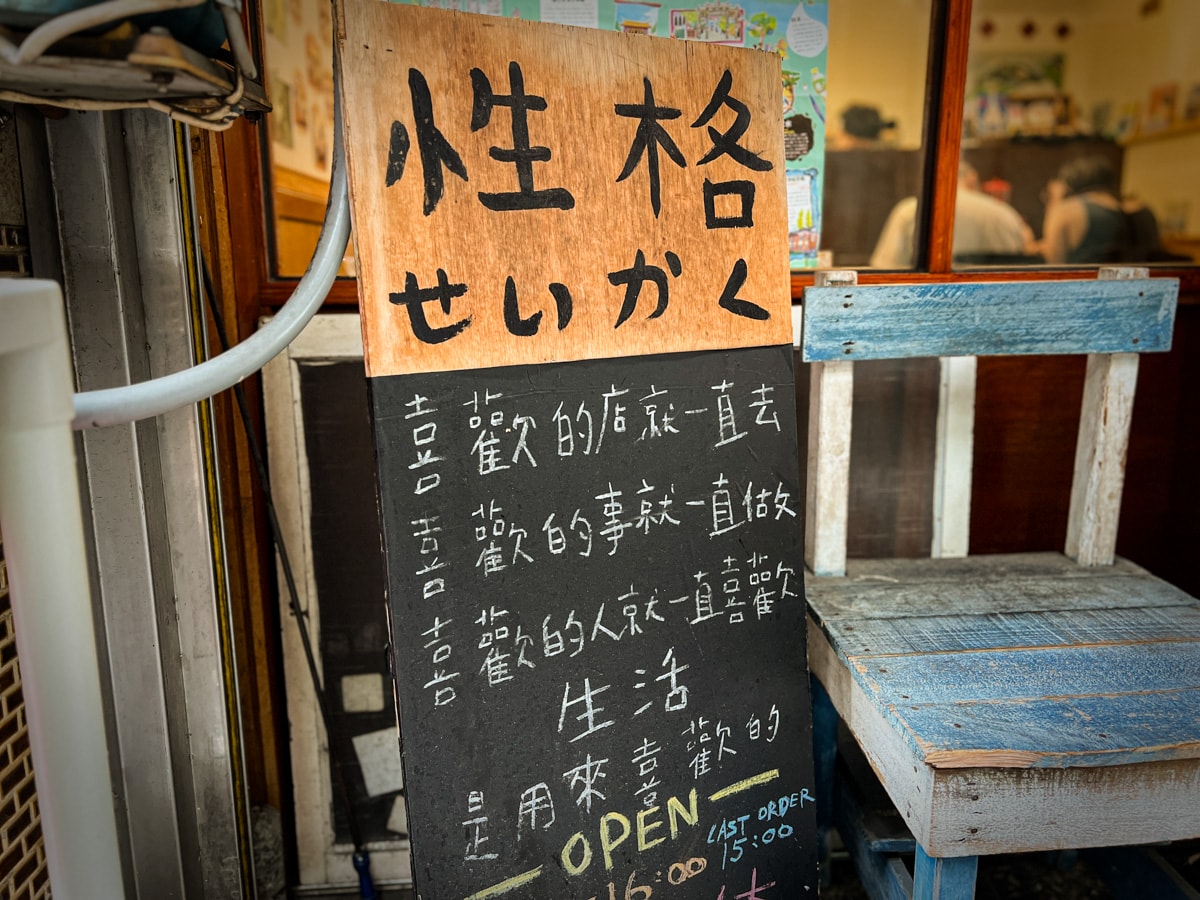 性格
せいかく
喜歡的店就一直去
喜歡的事就一直做
喜歡的人就一直喜歡
生活
是用來喜歡的
OPEN
LAST ORDER
16:00
15:00